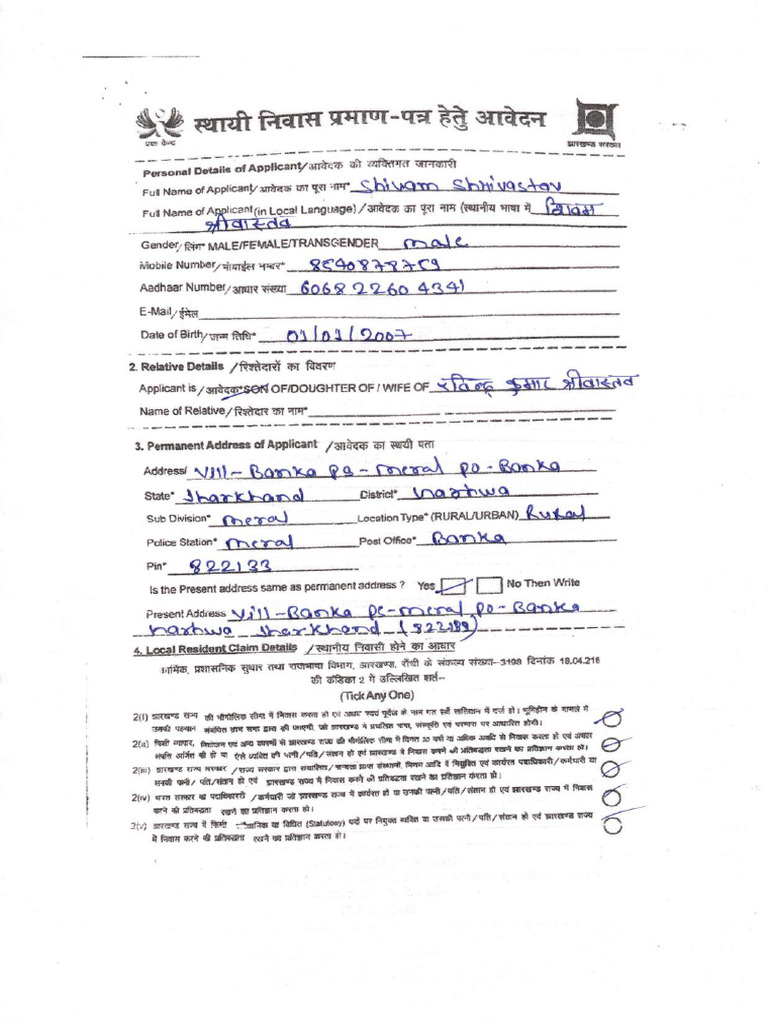 स्थायी निवास प्रमाण-पत्र हेतु आवेदन
प्रज्ञा केन्द्र
झारखण्ड सरकार
Personal Details of Applicant/आवेदक की व्यक्तिगत जानकारी
Full Name of Applicant/आवेदक का पूरा नाम* Shivam Shrivastav
Full Name of Applicant (in Local Language) / आवेदक का पूरा नाम (स्थानीय भाषा में शिवम
श्रीवास्तव
Gender/लिंग* MALE/FEMALE/TRANSGENDER male
Mobile Number/मोबाईल नम्बर* 8540878759
Aadhaar Number/आधार संख्या 6068 2260 4341
E-Mail/ईमेल
Date of Birth/जन्म तिथि* 01/01/2007
2. Relative Details /रिश्तेदारों का विवरण
Applicant is /आवेदक*SON OF/DOUGHTER OF / WIFE OF रविन्द्र कुमार श्रीवास्तव
Name of Relative/रिश्तेदार का नाम*
3. Permanent Address of Applicant /आवेदक का स्थयी पता
Address/ Vill- Banka ps - meral po - Banka
State* Jharkhand District* Garhwa
Sub Division* meral Location Type* (RURAL/URBAN) Rural
Police Station* meral Post Office* Banka
Pin* 822133
Is the Present address same as permanent address ? Yes No Then Write
Present Address Vill-Banka ps-meral po-Banka
Garhwa Jharkhand (822133)
4. Local Resident Claim Details /स्थानीय निवासी होने का आधार
कार्मिक, प्रशासनिक सुधार तथा राजभाषा विभाग, झारखण्ड, राँची के संकल्प संख्या-3198 दिनांक 18.04.216
की कंडिका 2 में उल्लिखित शर्त--
(Tick Any One)
2(i) झारखण्ड राज्य की भौगोलिक सीमा में निवास करता हो एवं स्वयं पूर्वज के नाम गत सर्वे खतियान में दर्ज हो। भूमिहीन के मामले में
उनकी पहचान संबंधित ग्राम सभा द्वारा की जाएगी, जो झारखण्ड में प्रचलित भाषा, संस्कृति एवं परम्परा पर आधारित होगी।
2(ii) किसी व्यापार, नियोजन एवं अन्य कारणों से झारखण्ड राज्य की भौगोलिक सीमा में विगत 30 वर्ष या अधिक अवधि से निवास करता हो एवं अचल
संपत्ति अर्जित की हो या ऐसे व्यक्ति की पत्नी/पति/संतान हो एवं झारखण्ड में निवास करने की प्रतिबद्धता रखने का प्रतिज्ञान करता हो।
2(iii) झारखण्ड राज्य सरकार /राज्य सरकार द्वारा संचालित/मान्यता प्राप्त संस्थानों, निगम आदि में नियुक्त एवं कार्यरत पदाधिकारी/कर्मचारी या
उनकी पत्नी/पति/संतान हो एवं झारखण्ड राज्य में निवास करने की प्रतिबद्धता रखने का प्रतिज्ञान करता हो।
2(iv) भारत सरकार का पदाधिकारी /कर्मचारी जो झारखण्ड राज्य में कार्यरत हो या उनकी पत्नी/पति/संतान हो एवं झारखण्ड राज्य में निवास
करने की प्रतिबद्धता रखने का प्रतिज्ञान करता हो।
2(v) झारखण्ड राज्य में किसी या विधित (Statutory) पदों पर नियुक्त व्यक्ति या उसकी पत्नी/पति/संतान हो एवं झारखण्ड राज्य
में निवास करने की प्रतिबद्धता रखने का प्रतिज्ञान करता हो।